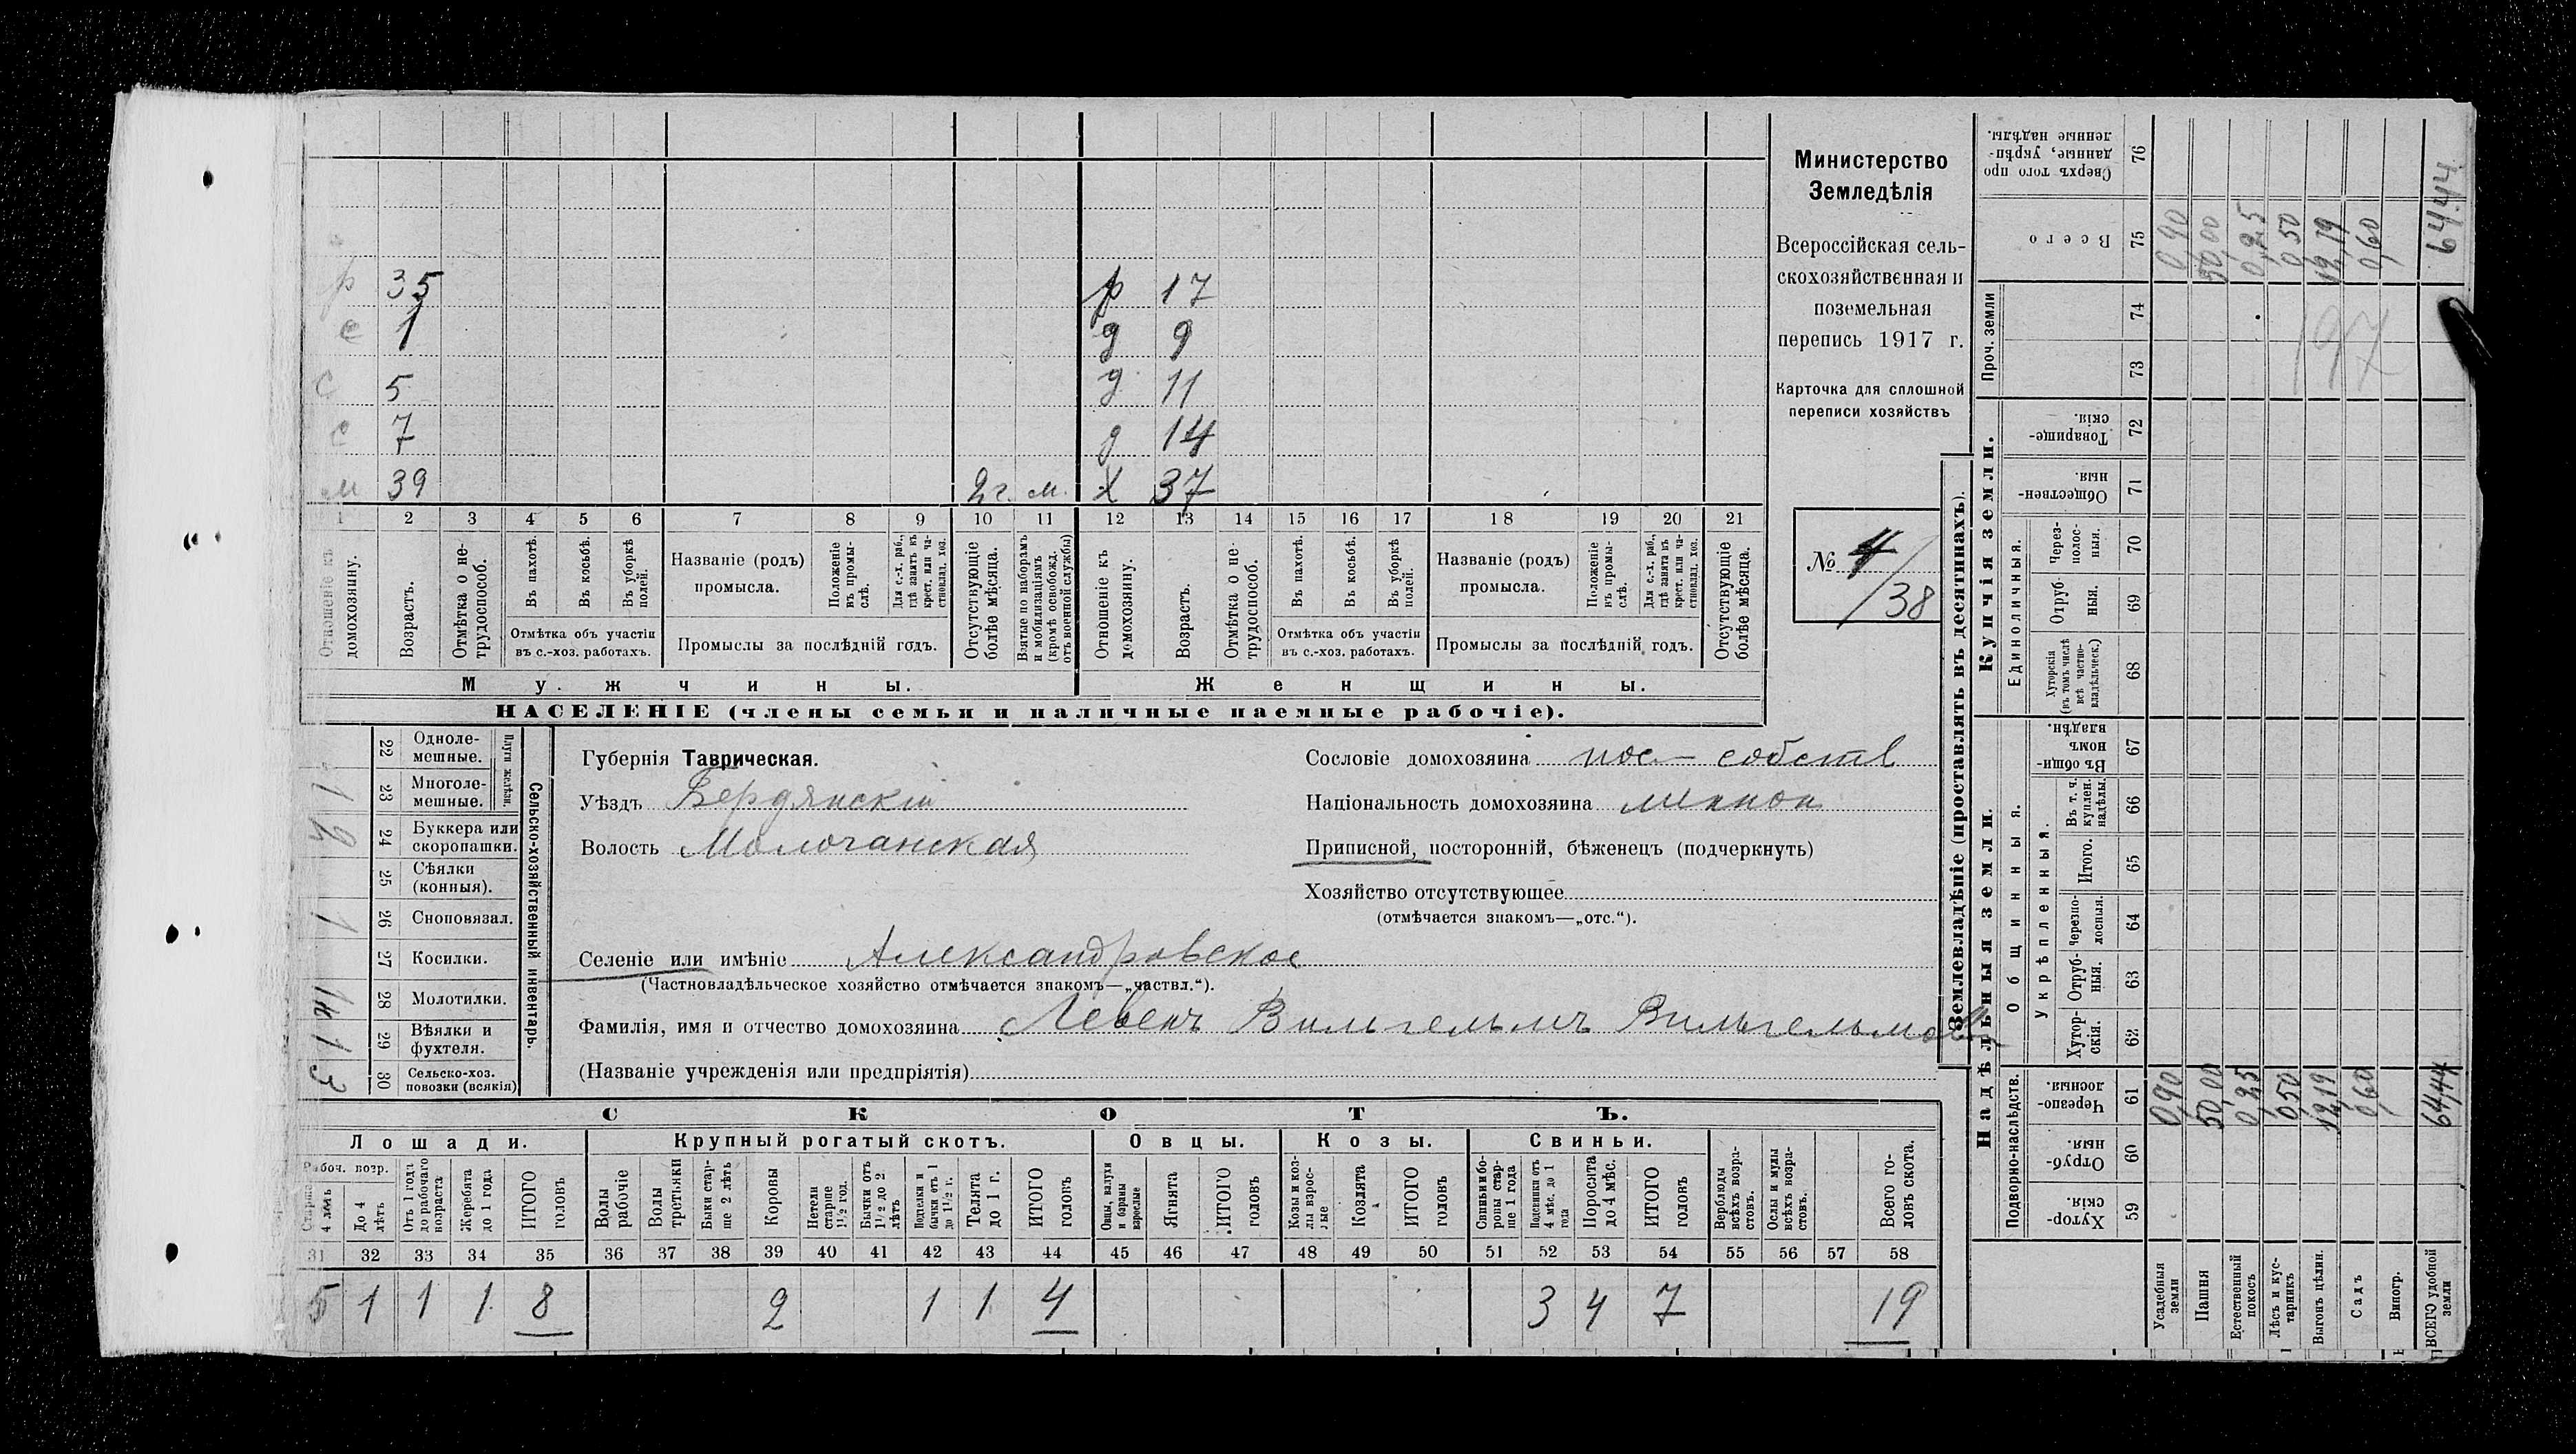 Министерство
Земледѣлія
Всероссійская сель-
скохозяйственная и
поземельная
перепись 1917 г.
Карточка для сплошной
переписи хозяйствъ
№ 4/38
р 35 р 17
с 1 д 9
с 5 д 11
с 7 д 14
м 39 2 г. м. х 37
1 2 3 4 5 6 7 8 9 10 11 12 13 14 15 16 17 18 19 20 21
Отношеніе къ домохозяину.
Возрастъ.
Отмѣтка о не-трудоспособ.
Въ пахотѣ.
Въ косьбѣ.
Въ уборкѣ полей.
Отмѣтка объ участіи
въ с.-хоз. работахъ.
Названіе (родъ)
промысла.
Положеніе въ промы-слѣ.
Для с.-х. раб., гдѣ занятъ въ крест. или ча-стновлад. хоз.
Промыслы за послѣдній годъ.
Отсутствующіе болѣе мѣсяца.
Взятые по наборамъ и мобилизаціямъ (кромѣ освобожд. отъ военной службы)
Отношеніе къ домохозяину.
Возрастъ.
Отмѣтка о не-трудоспособ.
Въ пахотѣ.
Въ косьбѣ.
Въ уборкѣ полей.
Отмѣтка объ участіи
въ с.-хоз. работахъ.
Названіе (родъ)
промысла.
Положеніе въ промы-слѣ.
Для с.-х. раб., гдѣ занята въ крест. или ча-стновлад. хоз.
Промыслы за послѣдній годъ.
Отсутствующіе болѣе мѣсяца.
Мужчины. Женщины.
НАСЕЛЕНІЕ (члены семьи и наличные наемные рабочіе).
Сельско-хозяйственный инвентарь.
Плуги желѣзн.
22 Одноле-мешные.
1 23 Многоле-мешные.
24 Буккера или скоропашки.
25 Сѣялки (конныя).
1 26 Сноповязал.
27 Косилки.
28 Молотилки.
1 29 Вѣялки и фухтеля.
3 30 Сельско-хоз. повозки (всякія)
Губернія Таврическая.
Уѣздъ Бердянскій
Волость Молочанская
Сословіе домохозяина пос-собств
Національность домохозяина меннон
Приписной, посторонній, бѣженецъ (подчеркнуть)
Хозяйство отсутствующее
(отмѣчается знакомъ—„отс.“).
Селеніе или имѣніе Александровское
(Частновладѣльческое хозяйство отмѣчается знакомъ—„частвл.“).
Фамилія, имя и отчество домохозяина Левенъ Вильгельмъ Вильгельмов
(Названіе учрежденія или предпріятія)
СКОТЪ.
Лошади. Крупный рогатый скотъ. Овцы. Козы. Свиньи.
Рабоч. возр.
Старше 4 лѣтъ
До 4 лѣтъ
Отъ 1 года до рабочаго возраста
Жеребята до 1 года
ИТОГО головъ
Волы рабочіе
Волы третьяки
Быки стар-ше 2 лѣтъ
Коровы
Нетели старше 1½ год.
Бычки отъ 1½ до 2 лѣтъ
Подтелки и бычки отъ 1 до 1½ г.
Телята до 1 г.
ИТОГО головъ
Овцы, валухи и бараны взрослые
Ягнята
ИТОГО головъ
Козы и коз-лы взрос-лые
Козлята
ИТОГО головъ
Свиньи и бо-ровы стар-ше 1 года
Подсвинки отъ 4 мѣс. до 1 года
Поросята до 4 мѣс.
ИТОГО головъ
Верблюды всѣхъ возра-стовъ.
Ослы и мулы всѣхъ возра-стовъ.
Всего го-ловъ скота.
31 32 33 34 35 36 37 38 39 40 41 42 43 44 45 46 47 48 49 50 51 52 53 54 55 56 57 58
5 1 1 1 8 2 1 1 4 3 4 7 19
Землевладѣніе (проставлять въ десятинахъ).
Надѣльныя земли. Купчія земли.
Подворно-наслѣдств.
Общинныя.
Укрѣпленныя.
Единоличныя.
Проч. земли
59 Хутор-скія.
60 Отруб-ныя.
61 Черезпо-лосныя.
62 Хутор-скія.
63 Отруб-ныя.
64 Черезпо-лосныя.
65 Итого.
66 Въ т. ч. куплен. надѣлы.
67 Въ общи-номъ владѣн.
68 Хуторскія (въ томъ числѣ всѣ частно-владѣльческ.)
69 Отруб-ныя.
70 Через-полос-ныя.
71 Обществен-ныя.
72 Товарище-скія.
73
74
75 Всего
76 Сверхъ того про-данные, укрѣп-ленные надѣлы.
Усадебныя земли 0,90 0,90
Пашня 50,00 50,00
Естественный покосъ 0,25 0,25
Лѣсъ и кус-тарникъ 0,50 0,50
Выгонъ цѣлин. 12,19 12,19
Садъ 0,60 0,60
Виногр.
ВСЕГО удобной земли 64,44 64,44
197